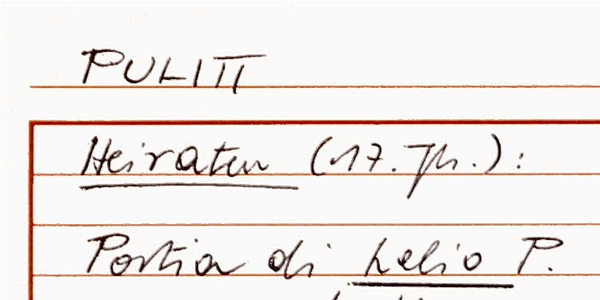 PULITI
Heiraten (17. Jh.):
Portia di Lelio P.